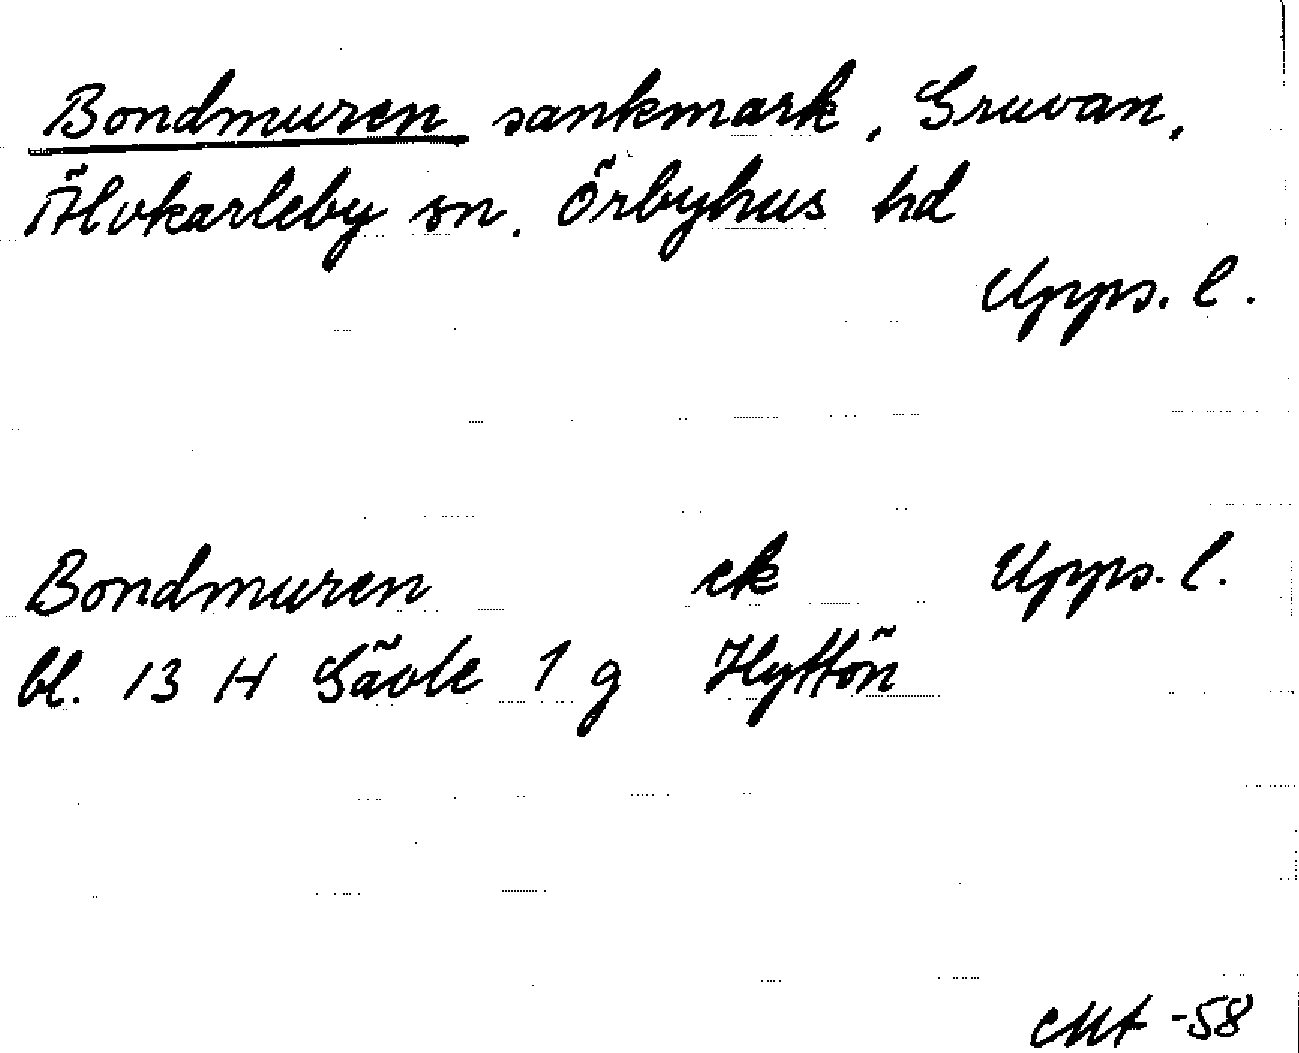 Bondmuren sankmark, Gruvan,
Älvkarleby sn. Örbyhus hd
Upps. l.
Bondmuren ek Upps. l.
bl. 13 H Gävle 1 g Hyttön
-58